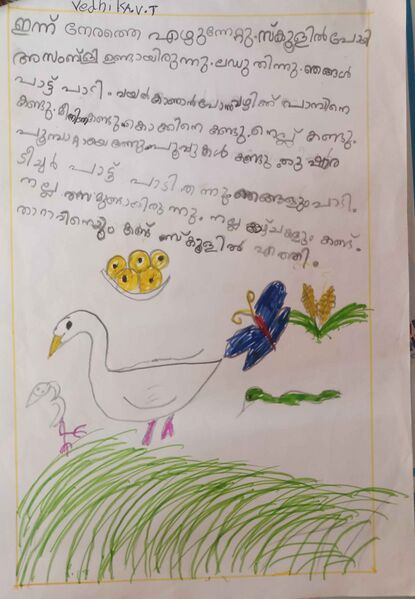 Vedhika.V.T
ഇന്ന് നേരത്തെ എഴുന്നേറ്റു. സ്കൂളിൽ പോയി
അസംബ്ളി ഉണ്ടായിരുന്നു. ലഡു തിന്നു. ഞങ്ങൾ
പാട്ട് പാടി. വയൽ കാണാൻ പോയി വഴിക്ക് പാമ്പിനെ
കണ്ടു. കണ്ടു. കൊക്കിനെ കണ്ടു. നെല്ല് കണ്ടു.
പൂമ്പാറ്റയെ കണ്ടു പൂവുകൾ കണ്ടു.
ടീച്ചർ പാട്ട് പാടി തന്നു. ഞങ്ങളും പാടി.
നല്ല രസമുണ്ടായിരുന്നു. നല്ല കാഴ്ചകളും കണ്ടു.
താറാവിനെയും കണ്ട് സ്കൂളിൽ എത്തി.